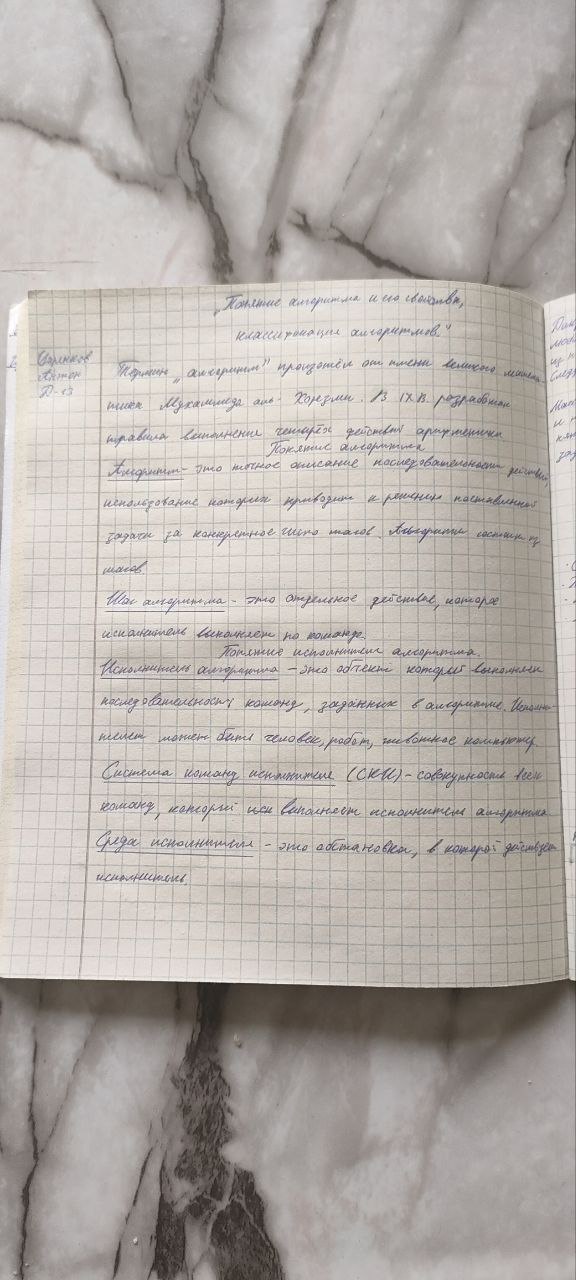 „Понятие алгоритма и его свойства,
классификация алгоритмов."
Антон
Термин „алгоритм" произошёл от имени великого матема-
тика Мухаммеда аль-Хорезми. В IX в. разработал
правила выполнения четырёх действий арифметики
Понятие алгоритма
Алгоритм - это точное описание последовательности действий,
использование которых приводит к решению поставленной
задачи за конкретное число шагов. Алгоритм состоит из
шагов.
Шаг алгоритма - это отдельное действие, которое
исполнитель выполняет по команде.
Понятие исполнителя алгоритма.
Исполнитель алгоритма - это объект который выполняет
последовательность команд, заданных в алгоритме. Исполни-
телем может быть человек, робот, животное компьютер.
Система команд исполнителя (СКИ) - совокупность всех
команд, который выполняет исполнитель алгоритма
Среда исполнителя - это обстановка, в которой действует
исполнитель.